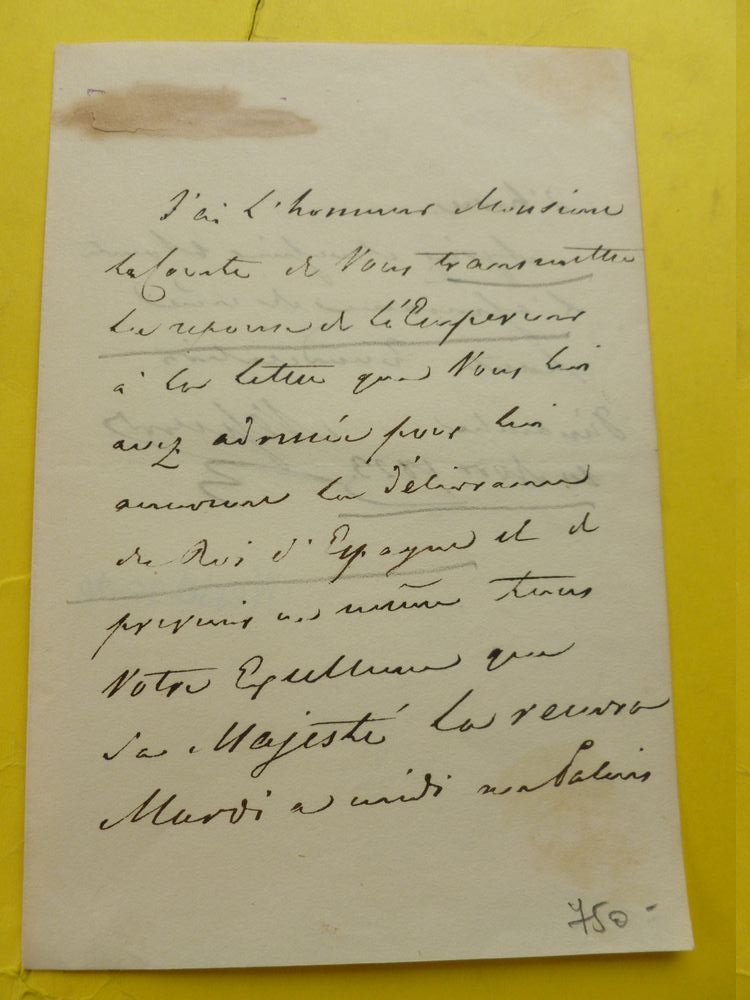 J'ai L'honneur Monsieur
le Comte de Vous transmettre
La reponse de L'Empereur
à la lettre que Vous lui
avez adressée pour lui
annoncer la délivrance
du Roi d'Espagne et de
prevenir en même tems
Votre Excellence que
Sa Majesté la recevra
Mardi a midi au Palais
750 -